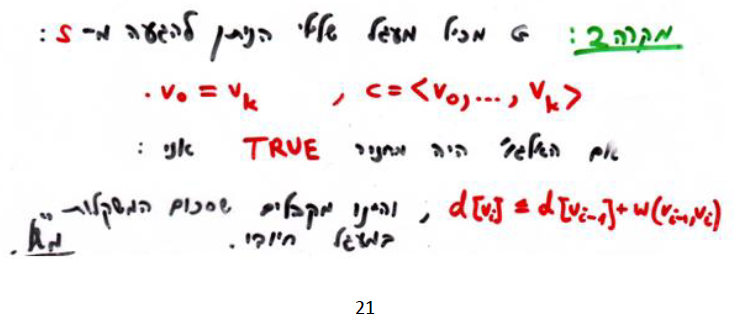 מקרה 2: G מכיל מעגל שלילי הניתן להגעה מ-S:
c=<v₀,...,vₖ> , v₀=vₖ.
אם האלג' היה מחזיר TRUE אזי:
d[vᵢ] ≤ d[vᵢ₋₁]+w(vᵢ₋₁,vᵢ) , והיינו מקבלים שסכום המשקלות
במעגל חיובי.
21